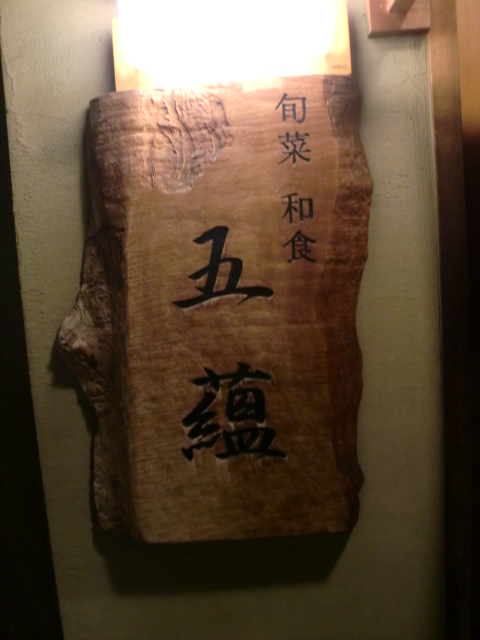 旬菜 和食
五蘊